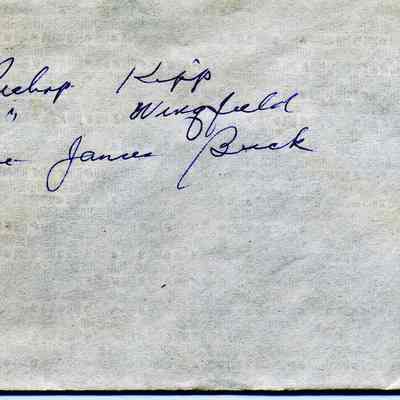 Bishop Kipp
" Wingfield
James Buck